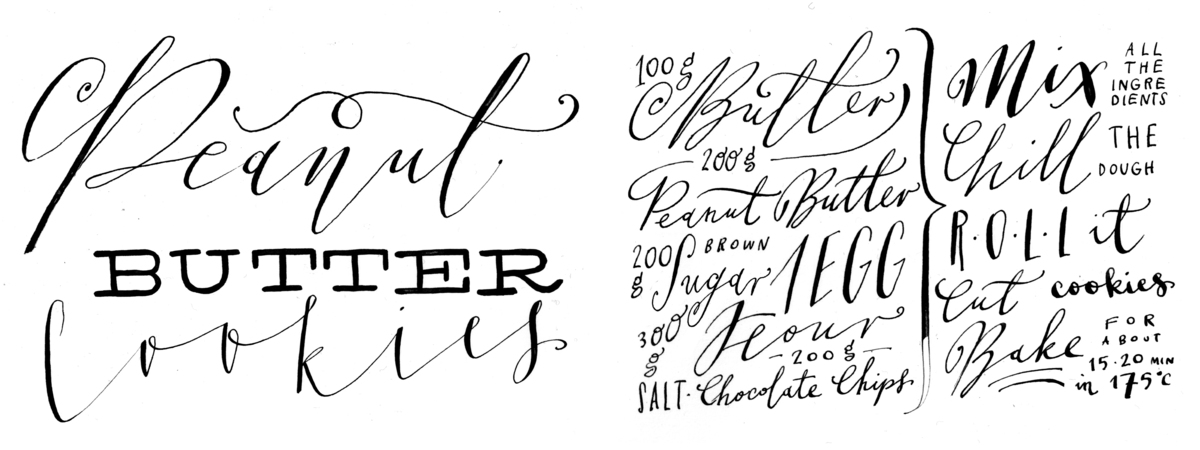 Peanut
BUTTER
Cookies
100g
Butter
200g
Peanut Butter
200g BROWN Sugar 1 EGG
300g Flour
200g
SALT · Chocolate Chips
Mix ALL THE INGRE
DIENTS
Chill THE
DOUGH
R·O·L·L it
Cut cookies
Bake FOR
ABOUT
15-20 MIN
in 175°C